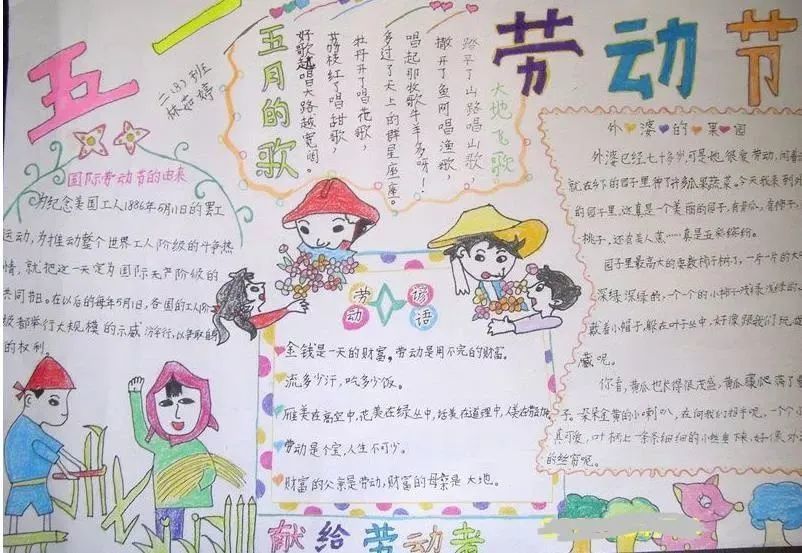 五一
劳动节
二(3)班
林茹婷
国际劳动节的由来
为纪念美国工人1886年5月1日的罢工
运动,为推动整个世界工人阶级的斗争热
情,就把这一天定为国际无产阶级的
共同节日。在以后的每年5月1日,各国的工人阶
级都举行大规模的示威游行,以争取自身
的权利。
五月的歌
大地飞歌
踏平了山路唱山歌
撒开了鱼网唱渔歌,
唱起那牧歌牛羊多呀!
多过了天上的群星座座。
牡丹开了唱花歌,
荔枝红了唱甜歌,
好歌越唱大路越宽阔。
劳动谚语
金钱是一天的财富。劳动是用不完的财富。
流多少汗,吃多少饭。
雁美在高空中,花美在绿丛中,话美在道理中,人美在劳动
劳动是个宝,人生不可少。
财富的父亲是劳动,财富的母亲是大地。
外婆的果园
外婆已经七十多岁,可是她很爱劳动,闲着
就在乡下的园子里种了许多瓜果蔬菜。今天我来到外
的园子里,这真是一个美丽的园子,有黄瓜,有柿子,
桃子,还有美人蕉……真是五彩缤纷。
园子里最高大的要数柿子树了,一片一片的大叶
深绿深绿的,一个一个的小柿子浅绿浅绿的,
戴着小帽子,躲在叶子丛中,好像跟我们玩捉
藏呢。
你看,黄瓜也长得很茂盛,黄瓜藤爬满了
子,一朵朵金黄的小喇叭,在向我们招手呢,一个个
真可爱,叶柄上一条条细细的小丝垂下来,好像
的丝窗呢。
献给劳动者